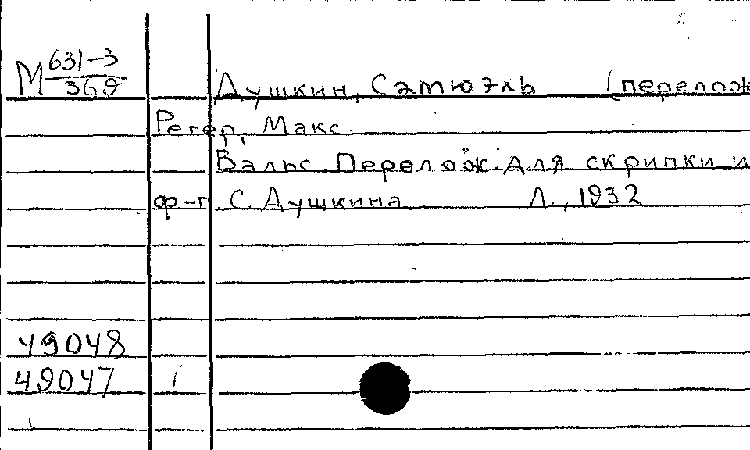 М 631-3
369
Душкин, Самюэль (перелож
Регер, Макс
Вальс. Перелож. для скрипки и
ф-п С. Душкина Л., 1932
49048
49047 1